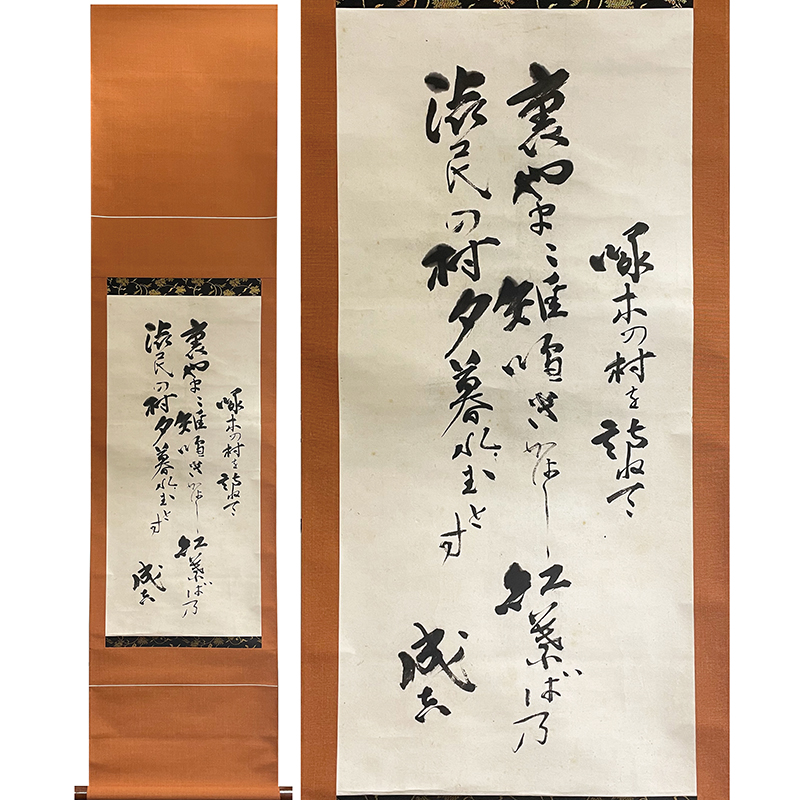 啄木の村を訪ねて
裏やまに雉啼きかなし紅葉ばの
渋民の村夕暮れむとす